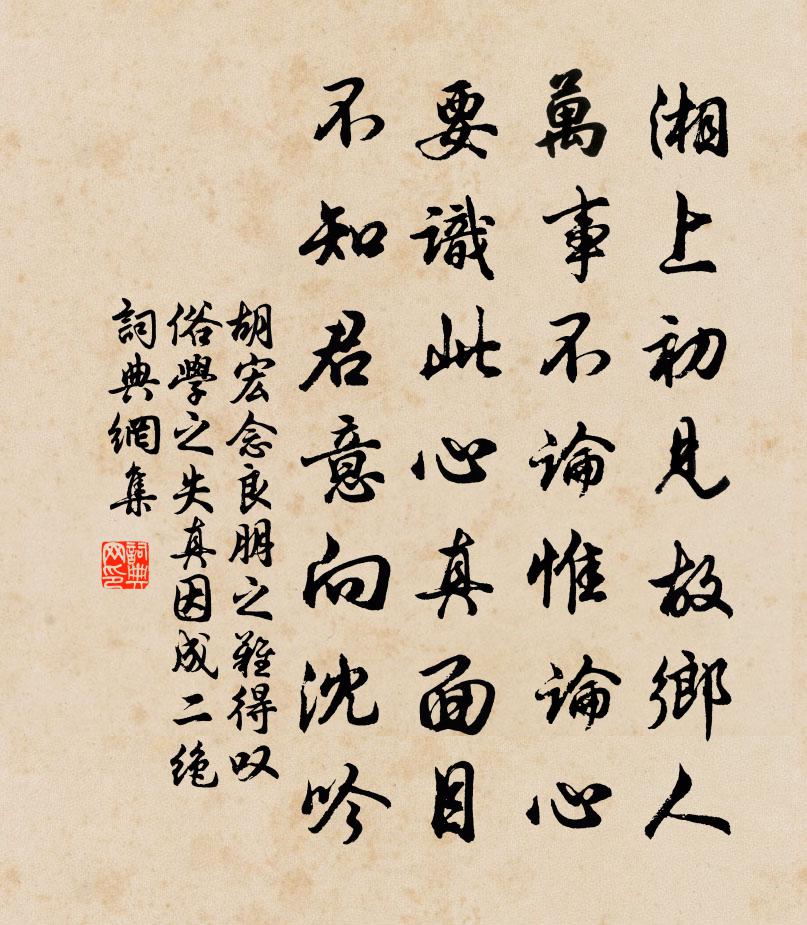 湘上初見故鄉人
萬事不論惟論心
要識此心真面目
不知君意向沈吟
胡宏念良朋之難得叹
俗學之失真因成二绝
詞典網集
詞典网印